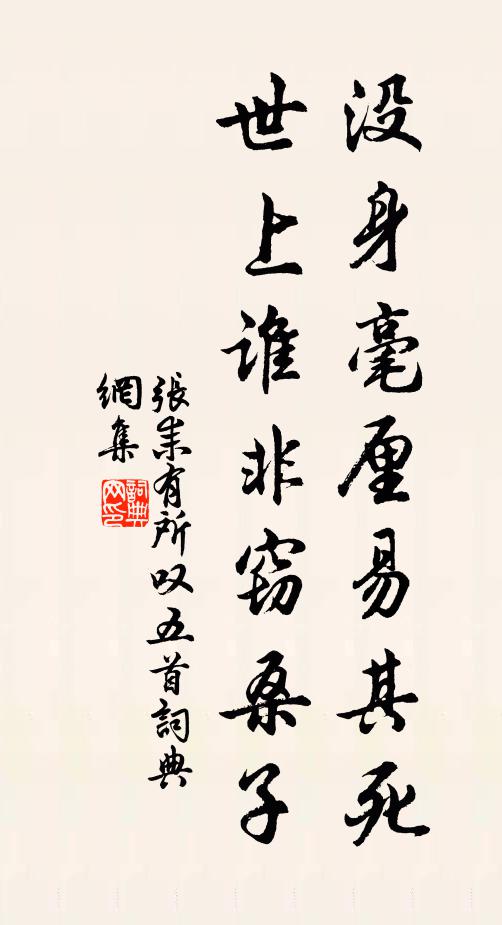 没身毫厘易其死
世上谁非窃桑子
張耒有所叹五首詞典
網集
詞典
网印